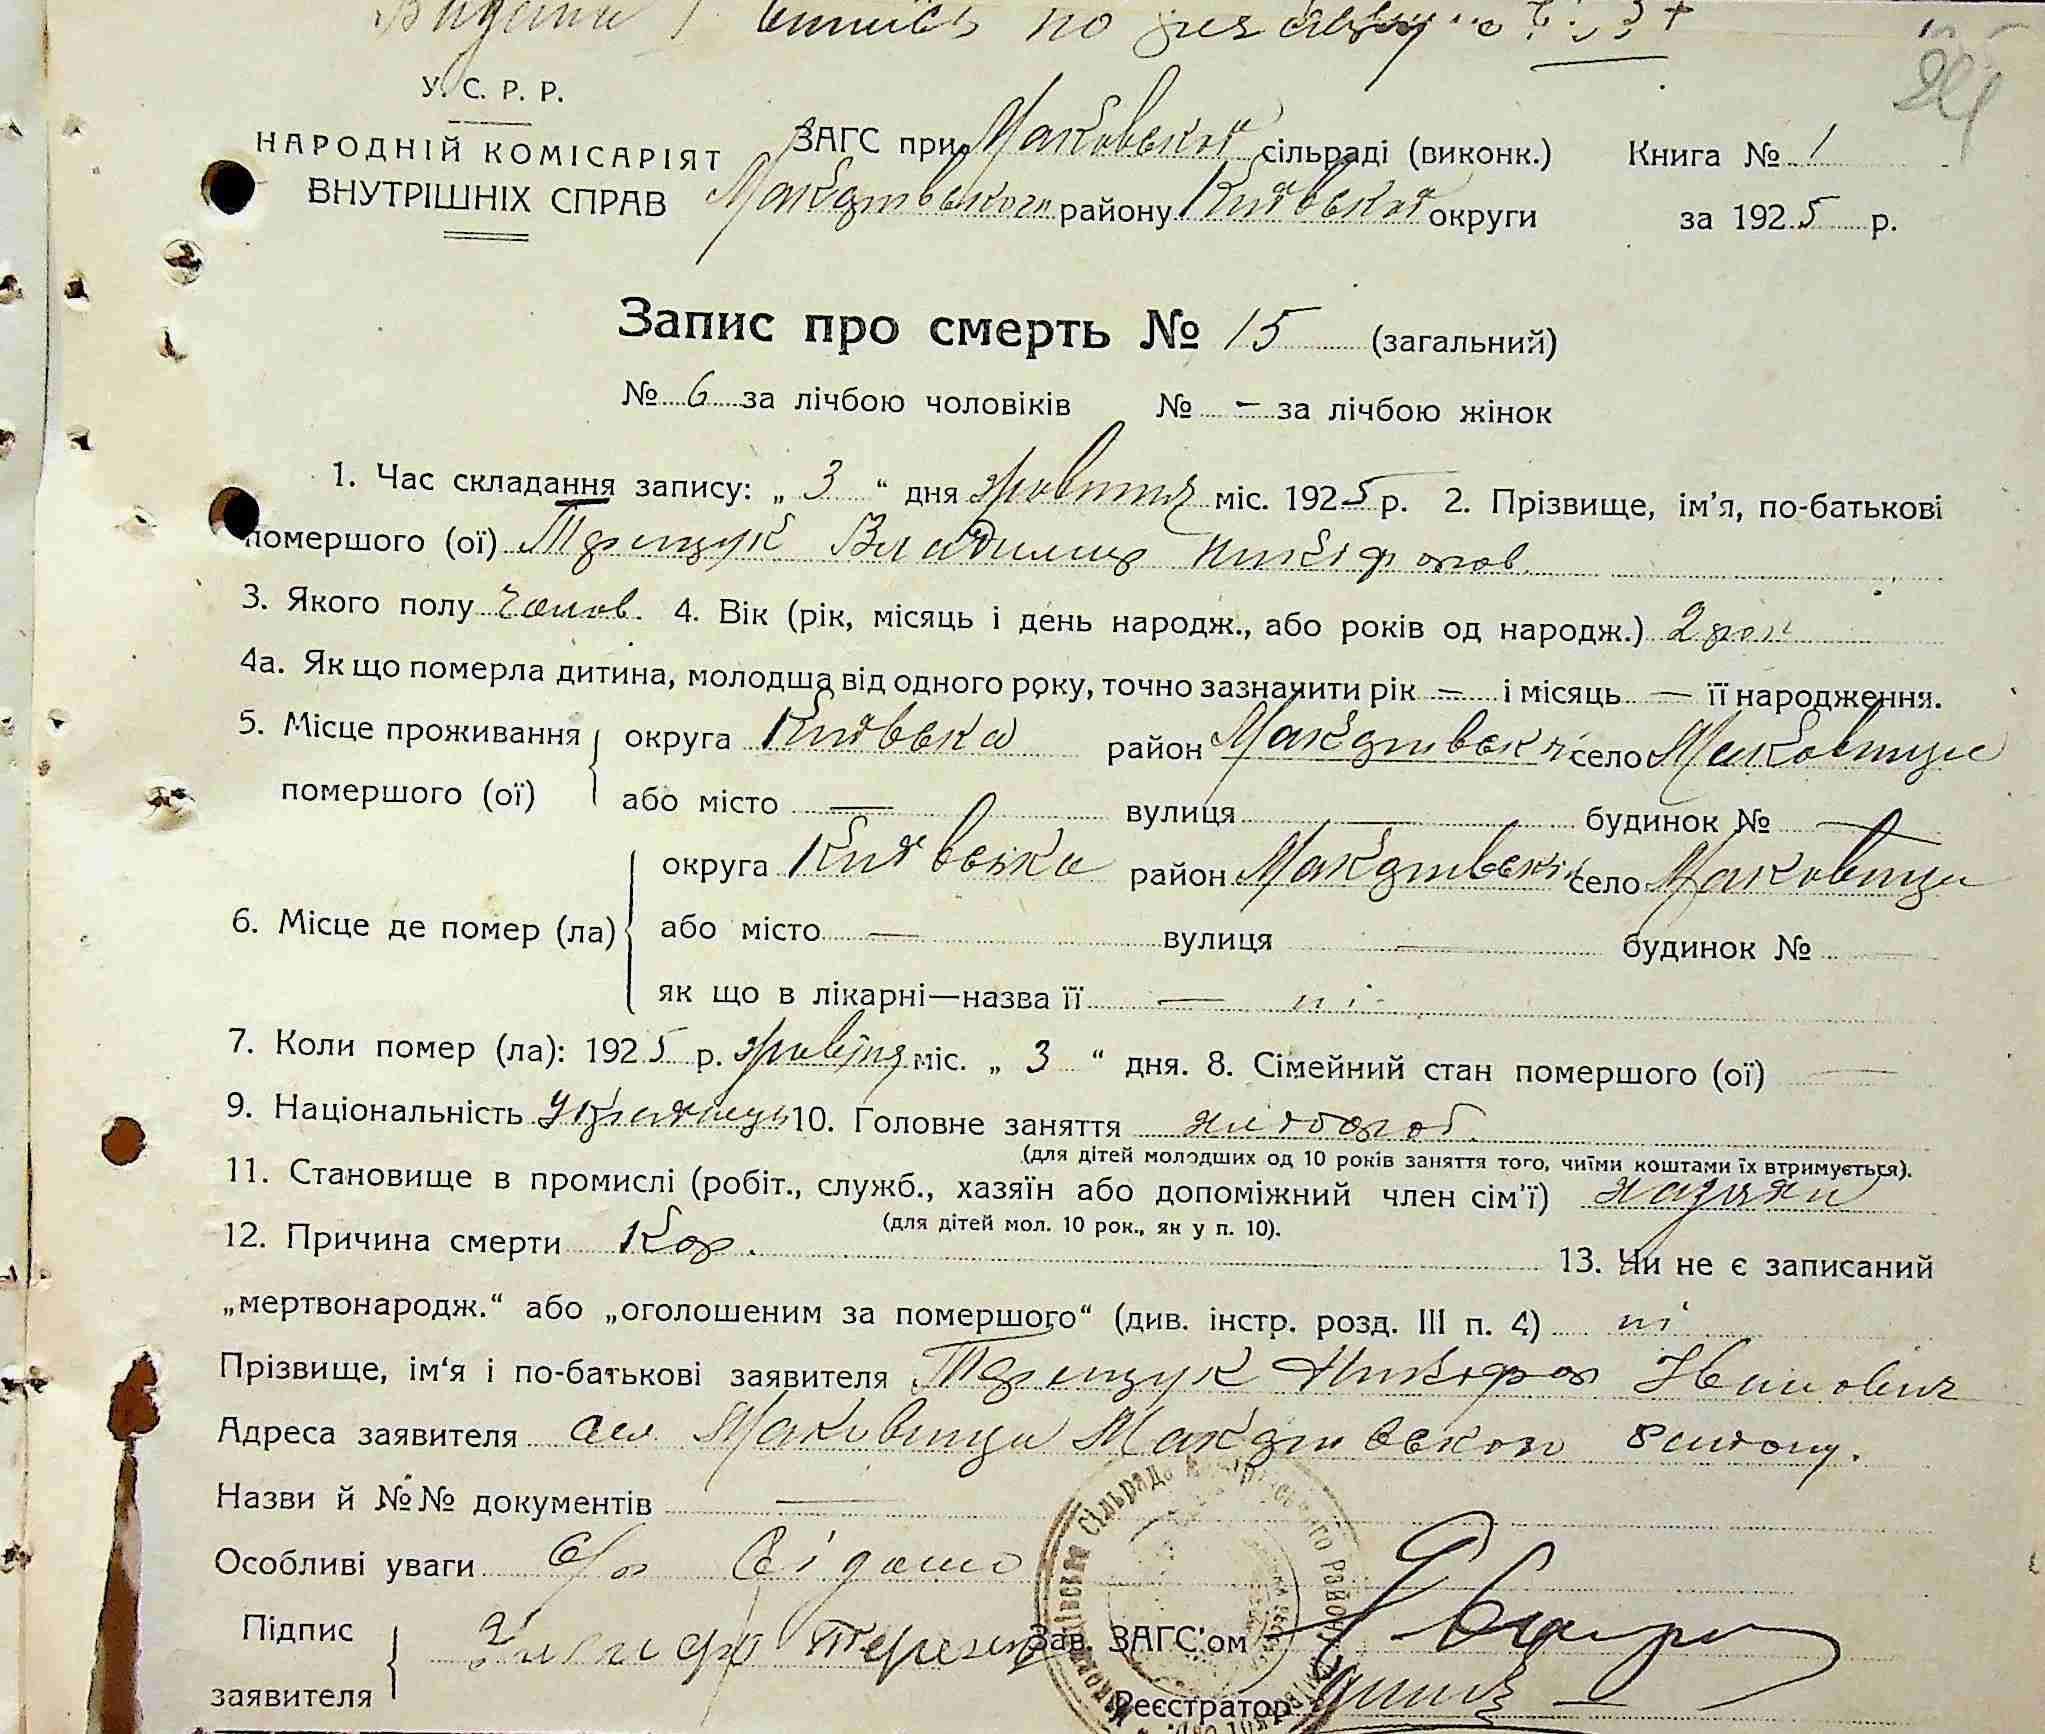 У. С. Р. Р.
НАРОДНІЙ КОМІСАРІЯТ
ВНУТРІШНІХ СПРАВ
ЗАГС при Маковской сільраді (виконк.) Книга № 1
району Київської округи за 1925 р.
Запис про смерть № 15 (загальний)
№ 6 за лічбою чоловіків № – за лічбою жінок
1. Час складання запису: „ 3 “ дня міс. 1925 р. 2. Прізвище, ім’я, по-батькові
помершого (ої) Терещук Владимир Никифоров.
3. Якого полу чолов. 4. Вік (рік, місяць і день народж., або років од народж.) 2 роки
4а. Як що померла дитина, молодша від одного року, точно зазначити рік – і місяць – її народження.
5. Місце проживання округа Київська район село Маковище
помершого (ої) або місто — вулиця — будинок № —
округа Київська район село Маковище
6. Місце де помер (ла) або місто — вулиця — будинок № —
як що в лікарні—назва її — ні
7. Коли помер (ла): 1925 р. міс. „ 3 “ дня. 8. Сімейний стан помершого (ої) —
9. Національність Українець 10. Головне заняття хлібороб
(для дітей молодших од 10 років заняття того, чиїми коштами їх втримується).
11. Становище в промислі (робіт., служб., хазяїн або допоміжний член сім’ї) хазяїн
(для дітей мол. 10 рок., як у п. 10).
12. Причина смерти Кор. 13. Чи не є записаний
„мертвонародж.“ або „оголошеним за помершого“ (див. інстр. розд. III п. 4) ні
Прізвище, ім‘я і по-батькові заявителя Терещук Никифор Іванович
Адреса заявителя Маковище району.
Назви й №№ документів —
Особливі уваги
Підпис
заявителя
Зав. ЗАГС’ом
Реєстратор